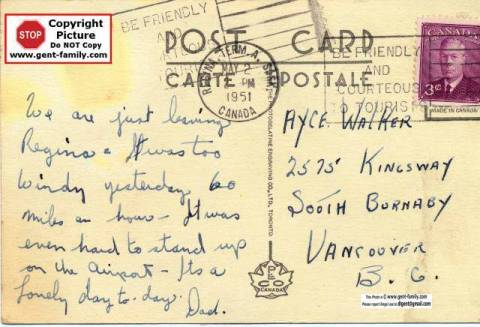 STOP
Copyright
Picture
Do NOT Copy
www.gent-family.com
BE FRIENDLY
AND
POST CARD
CARTE POSTALE
REGINA TERM. A. SASK.
MAY 2
PM
1951
CANADA
BE FRIENDLY
AND
COURTEOUS
TO TOURISTS
CANADA
3¢
MADE IN CANADA
We are just leaving
Regina & It was too
Windy yesterday 60
miles an hour - It was
even hard to stand up
on the Airport - Its a
lonely day to-day.
Dad.
AYCE WALKER
2575 KINGSWAY
SOUTH BURNABY
VANCOUVER
B.C.
PECO
CANADA
ENGRAVING CO., LTD., TORONTO
This Photo is © www.gent-family.com